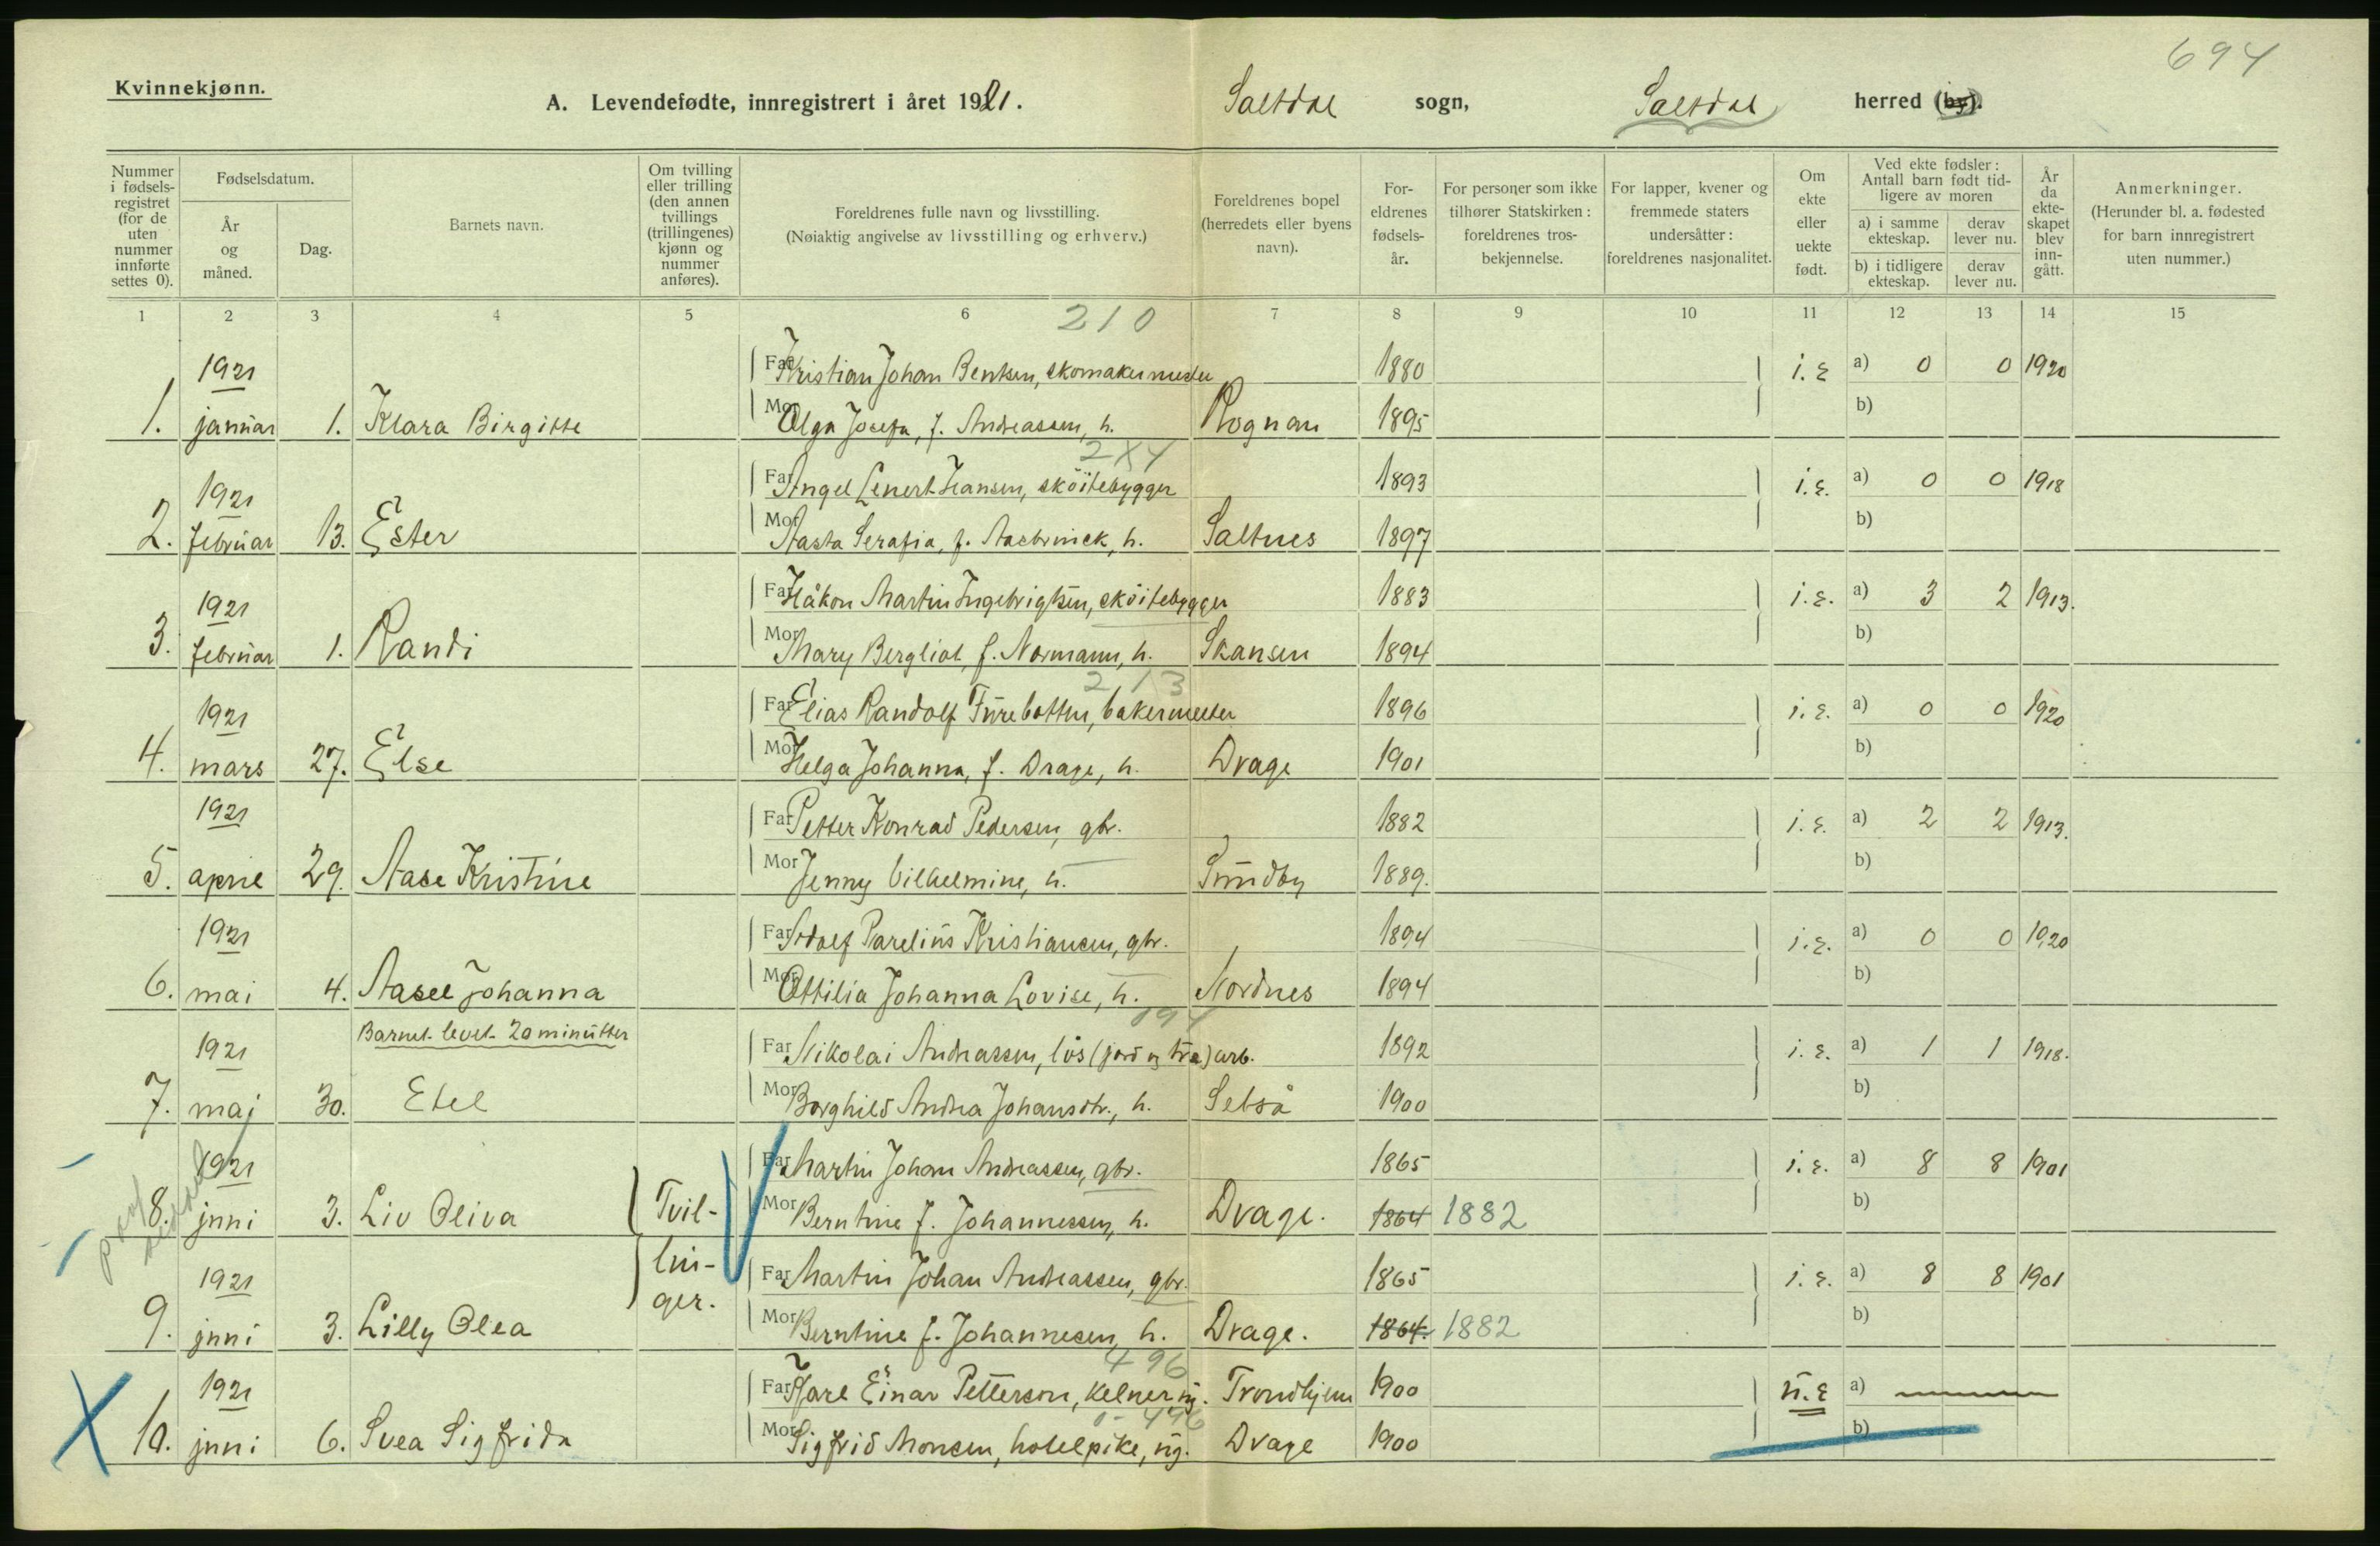 694
Kvinnekjønn.
A. Levendefødte, innregistrert i året 1921. Saltdal sogn, Saltdal herred (by).
Nummer i fødsels-registret (for de uten nummer innførte settes 0).
Fødselsdatum.
År og måned.
Dag.
Barnets navn.
Om tvilling eller trilling (den annen tvillings (trillingenes) kjønn og nummer anføres).
Foreldrenes fulle navn og livsstilling.
(Nøiaktig angivelse av livsstilling og erhverv.)
Foreldrenes bopel (herredets eller byens navn).
For-eldrenes fødsels-år.
For personer som ikke tilhører Statskirken: foreldrenes tros-bekjennelse.
For lapper, kvener og fremmede staters undersåtter: foreldrenes nasjonalitet.
Om ekte eller uekte født.
Ved ekte fødsler: Antall barn født tid-ligere av moren
a) i samme ekteskap. derav lever nu.
b) i tidligere ekteskap. derav lever nu.
År da ekte-skapet blev inn-gått.
Anmerkninger.
(Herunder bl. a. fødested for barn innregistrert uten nummer.)
1 2 3 4 5 6 7 8 9 10 11 12 13 14 15
210
1921 Far Kristian Johan Bentsen, skomakermester 1880 i.e a) 0 0 1920
1. januar 1. Klara Birgitte Mor Olga Josefa, f. Andreassen, h. Rognan 1895 b)
2X4
1921 Far Angel Lenert Hansen, sköitebygger 1893 i.e. a) 0 0 1918
2. februar 13. Ester Mor Aasta Serafia, f. h. Saltnes 1897 b)
1921 Far Håkon Martin Ingebrigtsen, sköitebygger 1883 i.e. a) 3 2 1913.
3. februar 1. Randi Mor Mary Bergliot, f. Normann, h. Skansen 1894 b)
213
1921 Far Elias Randolf Turebotten, bakermester 1896 i.e. a) 0 0 1920
4. mars 27. Else Mor Helga Johanna, f. Drage, h. Drage 1901 b)
1921 Far Petter Konrad Pedersen, gbr. 1882 i.e. a) 2 2 1913.
5. april 29. Aase Kristine Mor Jenny Vilhelmine, h. Sundby 1889. b)
1921 Far Adolf Parelius Kristiansen, gbr. 1894 i.e. a) 0 0 1920
6. mai 4. Aasel Johanna Mor Ottilia Johanna Lovise, h. Nordnes 1894 b)
Barnet levet 20 minutter
1921 Far Nikolai Andreassen, løs (jord og træ) arb. 1892 i.e. a) 1 1 1918.
7. maj 30. Etel Mor Borghild Andrea Johansdtr., h. Setså 1900 b)
1921 Far Martin Johan Andreassen, gbr. 1865 i.e. a) 8 8 1901
8. juni 3. Liv Oliva Tvil- Mor Berntine f. Johannessen, h. Drage. 1864 1882 b)
lin-
1921 Far Martin Johan Andreassen, gbr. 1865 i.e. a) 8 8 1901
ger.
9. juni 3. Lilly Olea Mor Berntine f. Johannesen, h. Drage. 1864. 1882 b)
496
1921 Far Karl Einar Petterson, kelner, ug. Trondhjem 1900 u.e a)
X 10. juni 6. Svea Sigfrida Mor Sigfrid Monsen, hotelpike, ug. Drage 1900 b)